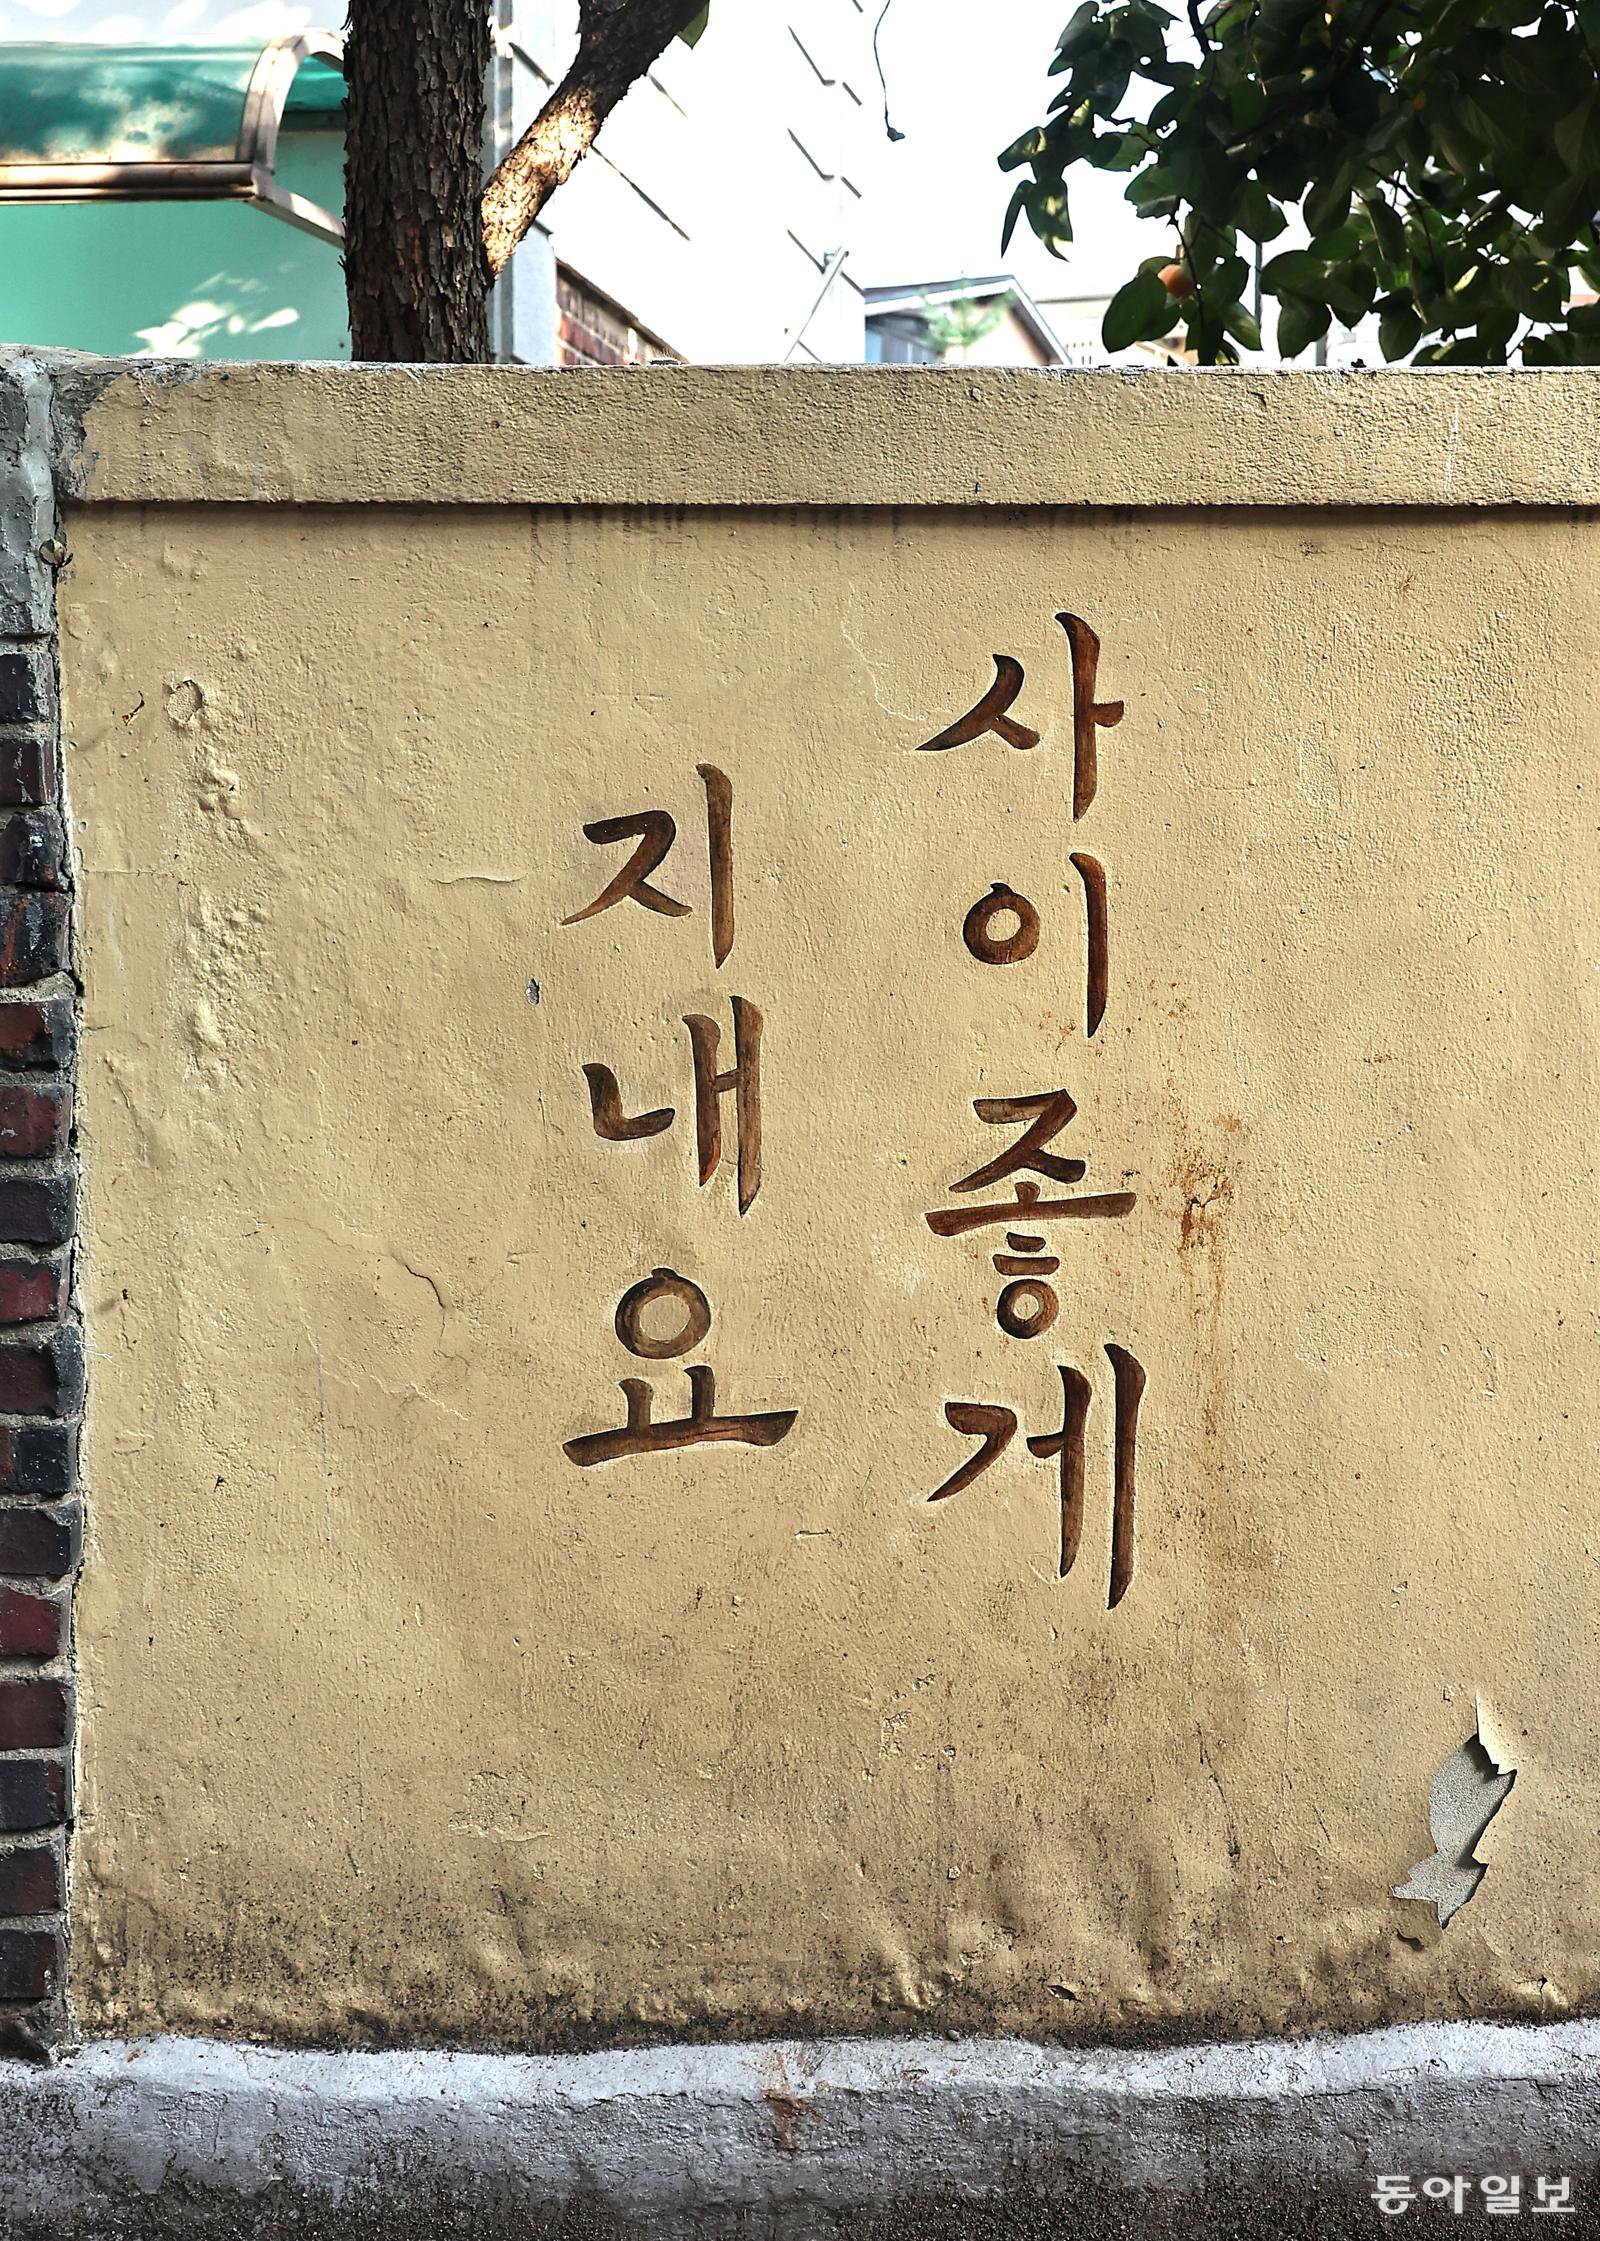 사이좋게
지내요
동아일보